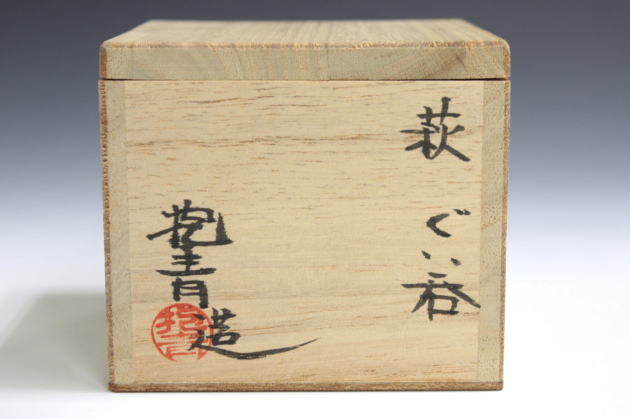 萩 ぐい呑
抱青造